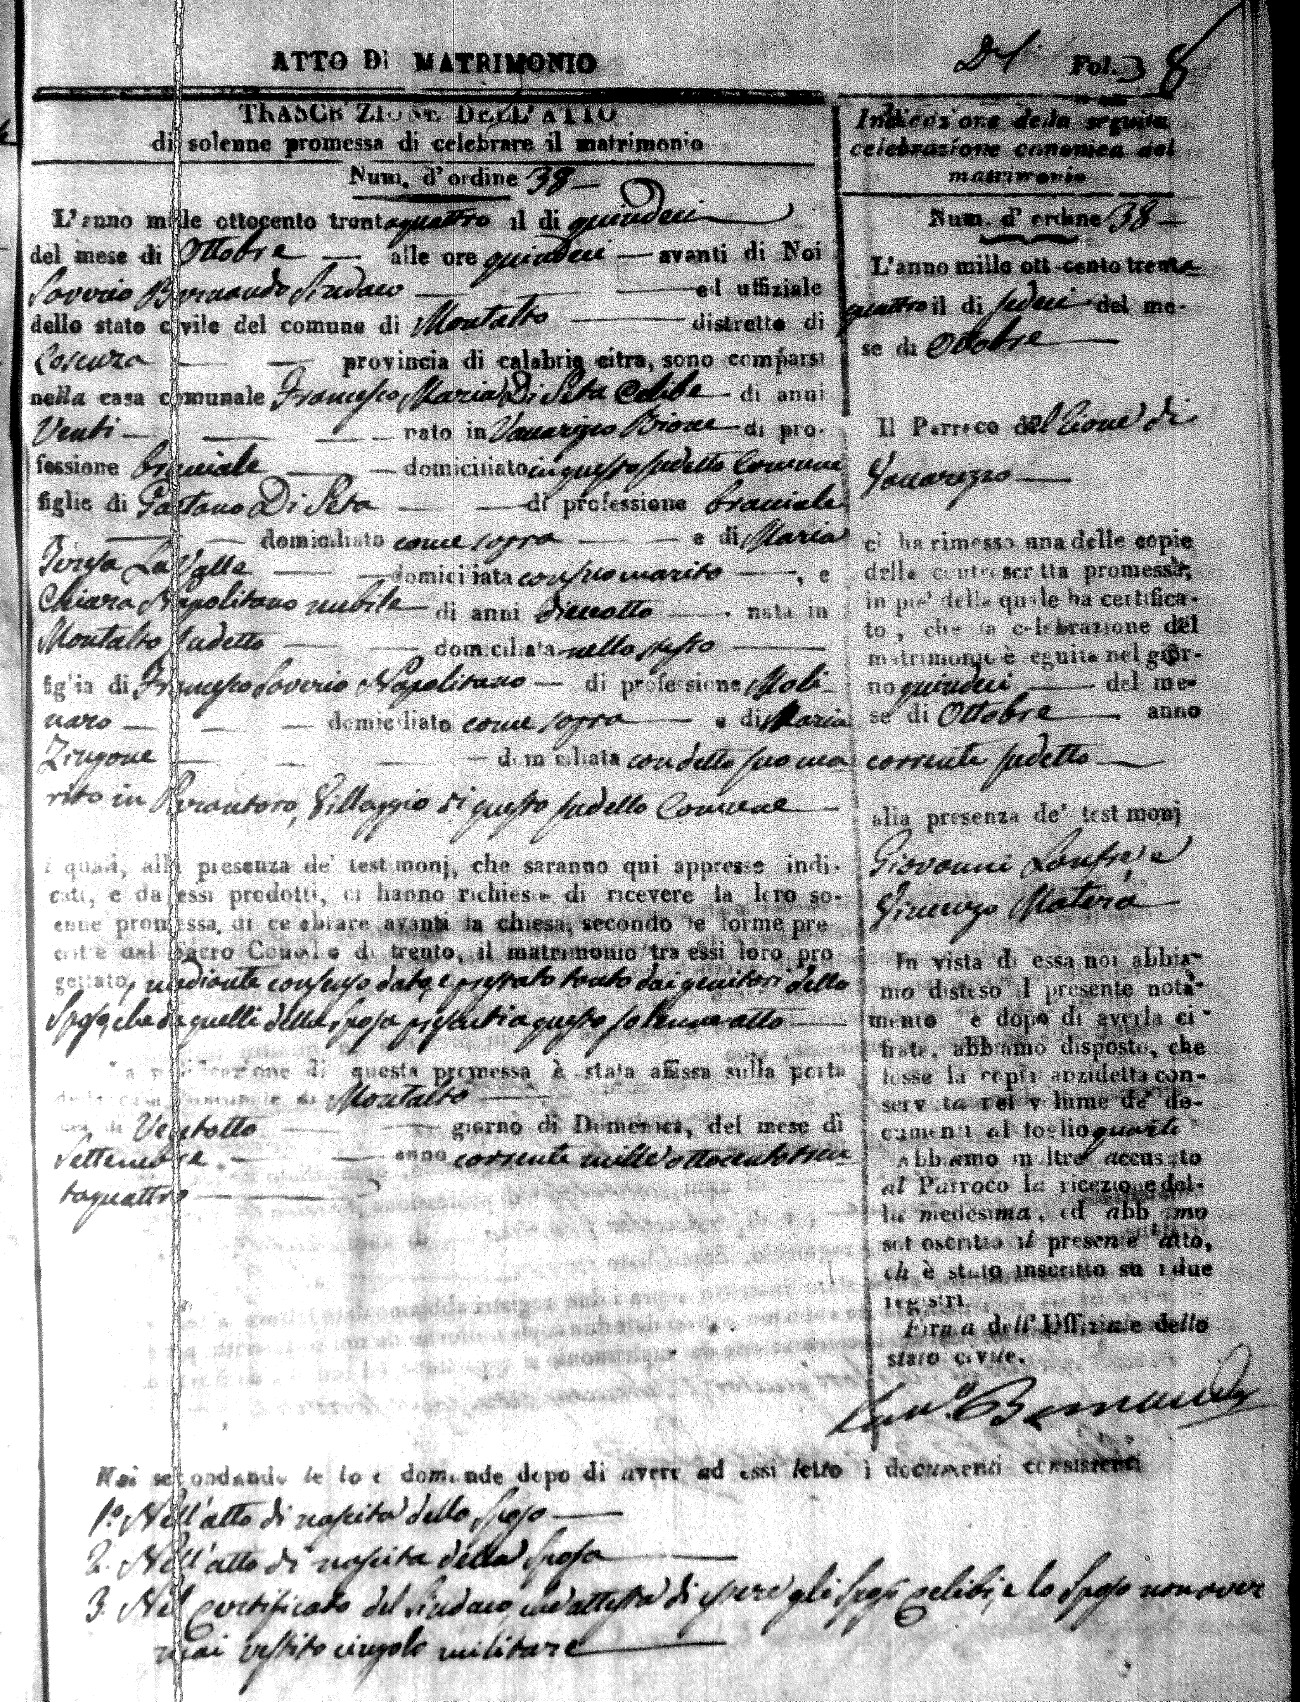 ATTO Di MATRIMONIO
Fol. 38
TRASCRIZIONE DELL'ATTO
di solenne promessa di celebrare il matrimonio
Num. d'ordine 38
L'anno mille ottocento trentaquattro il di quindeci
del mese di Ottobre alle ore quindeci avanti di Noi
Saverio Bernaudo Sindaco ed uffiziale
dello stato civile del comune di Montalto distretto di
Cosenza provincia di calabria citra, sono comparsi
nella casa comunale Francesco Maria Di Seta Celibe di anni
Venti nato in Vaccarizzo di pro-
fessione bracciale domiciliato in questo sudetto Comune
figlio di Gaetano Di Seta di professione bracciale
domiciliato come sopra e di Maria
Teresa La Valle domiciliata con suo marito, e
Chiara Napolitano nubile di anni dieciotto nata in
Montalto sudetto domiciliata nello stesso
figlia di Francesco Saverio Napolitano di professione Moli
naro domiciliato come sopra e di Maria
Zingone domiciliata con detto suo ma
rito in Parantoro, Villaggio di questo sudetto Comune
i quali, alla presenza de' testimonj, che saranno qui appresso indi-
cati, e da essi prodotti, ci hanno richiesto di ricevere la loro so-
enne promessa, di celebrare avanti la chiesa, secondo le forme pre
critte dal sacro Concilio di trento, il matrimonio tra essi loro pro
gettato, mediante consenso dato, e prestato tanto dai genitori dello
Sposo, che da quelli della Sposa presenti a questo solenne atto
La pubblicazione di questa promessa è stata affissa sulla porta
della casa comunale di Montalto
Ventotto giorno di Domenica, del mese di
Settembre anno corrente mille ottocento tren
taquattro
Noi secondando le loro domande dopo di avere ad essi letto i documenti consistenti
1.° Nell'atto di nascita dello Sposo
2. Nell'atto di nascita della Sposa
3. Nel Certificato del Sindaco, che attesta di essere gli Sposi celibi, e lo Sposo non aver
mai vestito cingolo militare
Indicazione della seguita
celebrazione canonica del
matrimonio
Num. d'ordine 38
L'anno mille ottocento trenta
quattro il di sedeci del me-
se di Ottobre
Il Parroco del Rione di
Vaccarizzo
ci ha rimesso una delle copie
della controscritta promessa,
in pie' della quale ha certifica-
to, che la celebrazione del
matrimonio è seguita nel gior-
no quindeci del me-
se di Ottobre anno
corrente sudetto
alla presenza de' testimonj
Giovanni e
Vincenzo Matera
In vista di essa noi abbia-
mo disteso il presente nota-
mento e dopo di averla ci-
frata, abbiamo disposto, che
fosse la copia anzidetta con-
servata nel volume de' do-
cumenti al foglio quarti
Abbiamo inoltre accusato
al Parroco la ricezione del-
la medesima, ed abbiamo
sottoscritto il presente atto,
ch' è stato inscritto su i due
registri.
Firma dell' Uffiziale dello
stato civile.
Sav.° Bernaudo